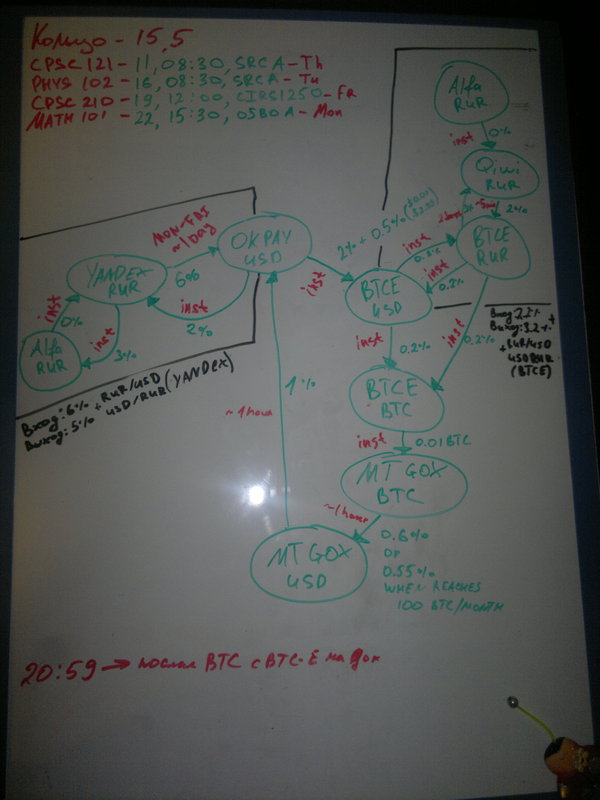 Кольцо - 15,5
CPSC 121 - 11, 08:30, SRC A - Th
PHYS 102 - 16, 08:30, SRC A - Tu
CPSC 210 - 19, 12:00, CIRS 1250 - Fr
MATH 101 - 22, 15:30, OSBO A - Mon
Alfa
RUR
inst
0%
Qiwi
RUR
inst
2%
BTCE
RUR
MON-FRI
~1 DAY
6%
OKPAY
USD
2% + 0.5%
inst
inst
0.2%
inst
0.2%
YANDEX
RUR
inst
2%
BTCE
USD
inst
0%
inst
3%
Alfa
RUR
Вход: 6% + RUR/USD
Выход: 5% USD/RUR (YANDEX)
inst
0.2%
inst
0.2%
Вход: 2.2% +
Выход: 3.2%
+ RUR/USD
USD/RUR
(BTCE)
BTCE
BTC
1%
~1 hour
inst
0.01 BTC
MT GOX
BTC
~1 hour
0.6%
or
0.55%
WHEN REACHES
100 BTC/MONTH
MT GOX
USD
20:59 → послал BTC с BTC-E на Гок